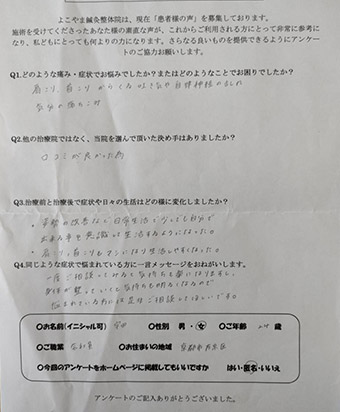 よこやま鍼灸整体院は、現在「患者様の声」を募集しております。
施術を受けてくださったあなた様の素直な声が、これからご利用される方にとって非常に参考に
なり、私どもにとっても何よりの力になります。さらなる良いものを提供できるようにアンケー
トのご協力お願いします。
Q1.どのような痛み・症状でお悩みでしたか？またはどのようなことでお困りでしたか？
肩こり、首こりからくるめまいや自律神経の乱れ
気分の落ちこみ
Q2.他の治療院ではなく、当院を選んで頂いた決め手はありましたか？
口コミが良かった為
Q3.治療前と治療後で症状や日々の生活はどの様に変化しましたか？
・姿勢の改善など日常生活で少しでも自分で
出来る事を意識して生活するようになった。
・肩こり、首こりもマシになり生活しやすくなった。
Q4.同じような症状で悩まれている方に一言メッセージをおねがいします。
一度ご相談してみると気持ちも楽になりますし、
身体が整っていくと気持ちも明るくなるので
悩まれている方には是非ご相談してほしいです。
○お名前(イニシャル可) ○性別 男・女 ○ご年齢 歳
○ご職業 会社員 ○お住まいの地域 京都市
○今回のアンケートをホームページに掲載してもいいですか はい・匿名・いいえ
アンケートのご記入ありがとうございました。